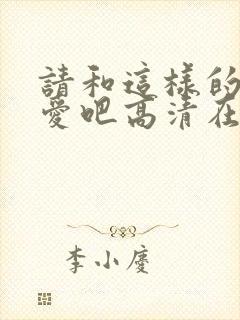 請和這樣的
愛吧高清在
李小慶